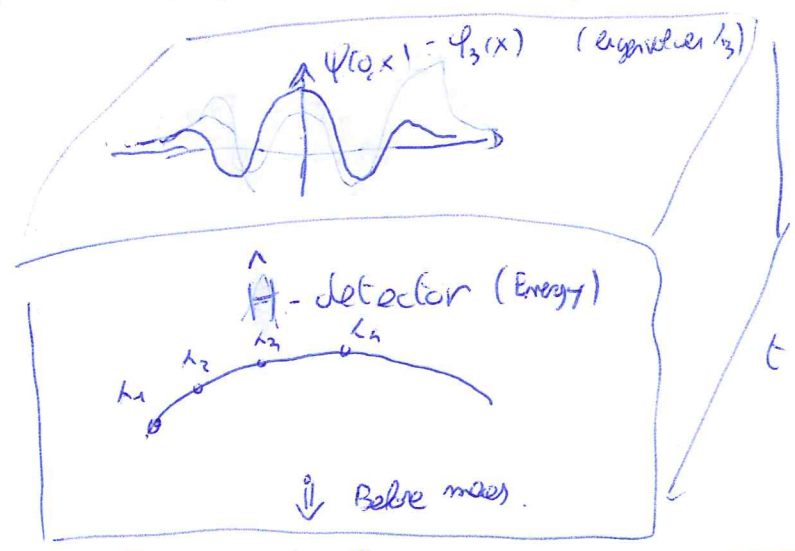 ψ(0,x) = φ₃(x) (eigenvalues λ₃)
Ĥ - detector (Energy)
λ₁ λ₂ λ₃ λ₄
t
⇓ Before meas.